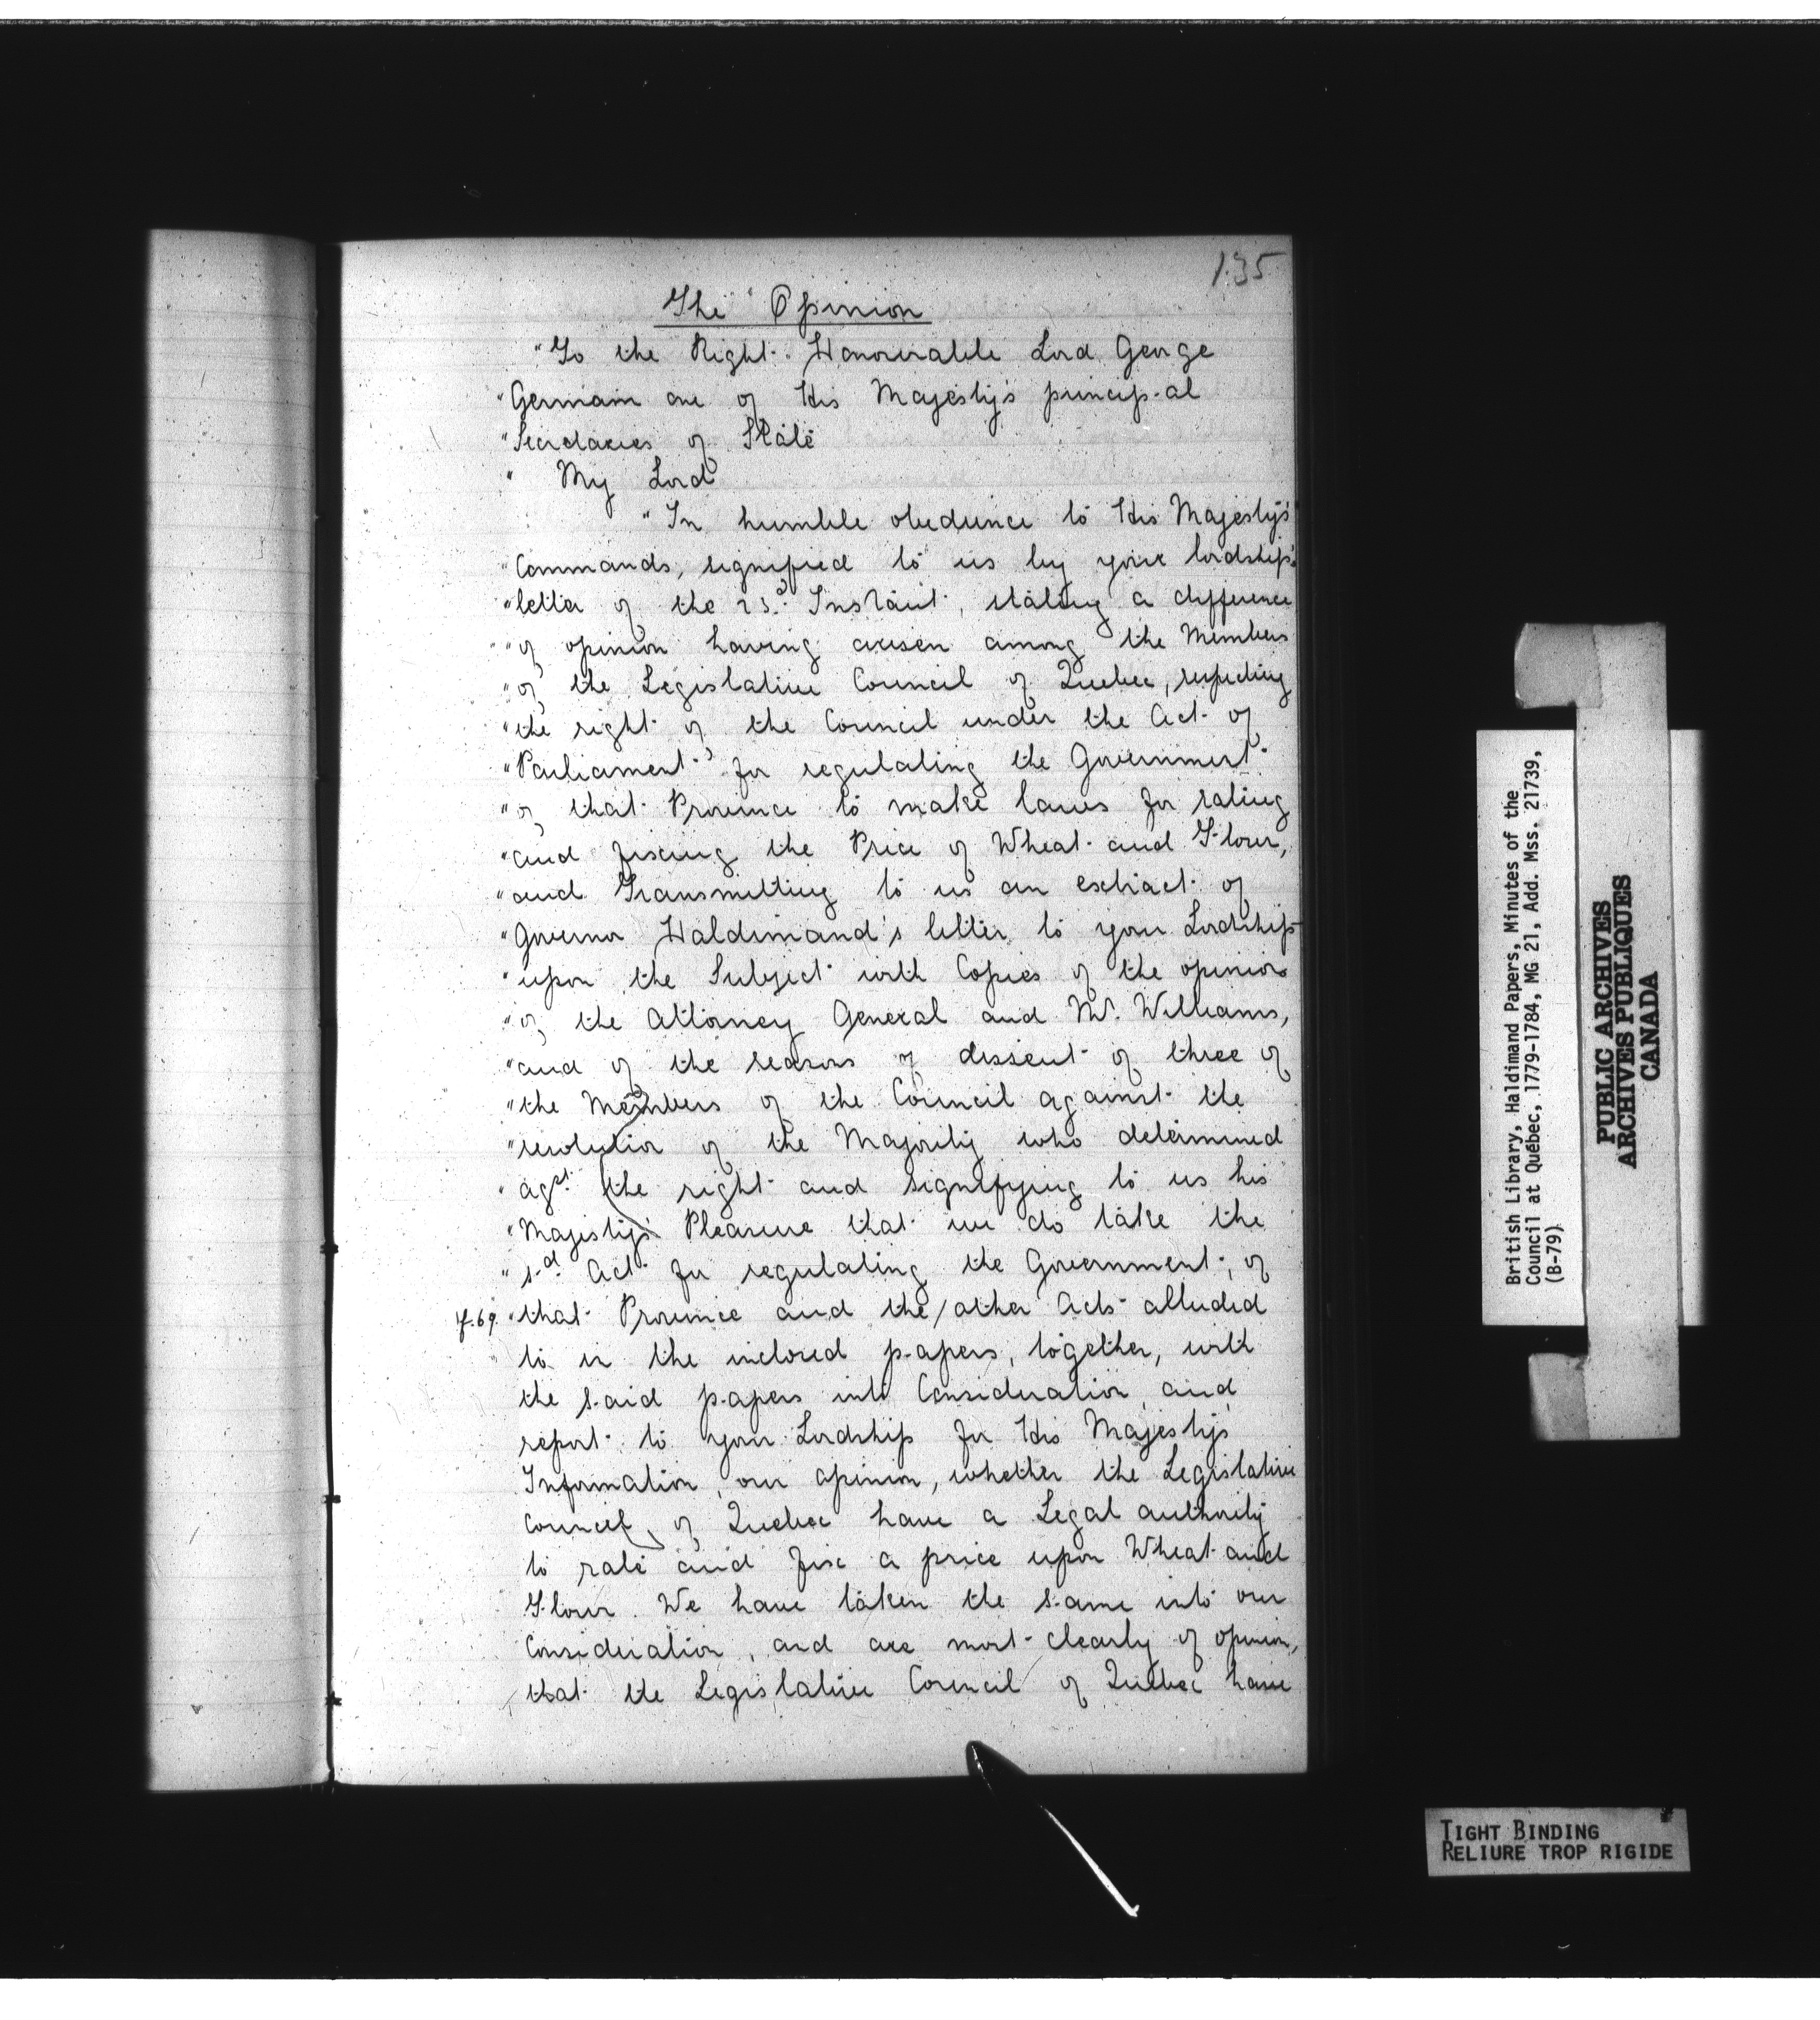 135
The Opinion
"To the Right Honourable Lord George
"Germain one of His Majesty's principal
"Secretaries of State
" My Lord
"In humble obedience to His Majesty's
"Commands, signified to us by your lordship's
"letter of the 23.d Instant, stating a difference
"of opinion having arisen among the Members
"of the Legislative Council of Quebec, respecting
"the right of the Council under the Act of
"Parliament for regulating the Government
"of that Province to make laws for rating
"and fixing the Price of Wheat and Flour,
"and Transmitting to us an extract of
"Governor Haldimand's letter to your Lordship
"upon the Subject with Copies of the opinions
"of the Attorney General and Mr. Williams,
"and of the reasons of dissent of three of
"the Members of the Council against the
"resolution of the Majority who determined
"agst. the right and signifying to us his
"Majesty's Pleasure that we do take the
"s.d Act for regulating the Government, of
f.69. "that Province and the/other Acts alluded
to in the inclosed papers, together, with
the said papers into Consideration and
report to your Lordship for His Majesty's
Information, our opinion, whether the Legislative
Council of Quebec have a Legal authority
to rate and fix a price upon Wheat and
Flour. We have taken the same into our
Consideration, and are most clearly of opinion,
that the Legislative Council of Quebec have
British Library, Haldimand Papers, Minutes of the
Council at Québec, 1779-1784, MG 21, Add. Mss. 21739,
(B-79)
PUBLIC ARCHIVES
ARCHIVES PUBLIQUES
CANADA
TIGHT BINDING
RELIURE TROP RIGIDE